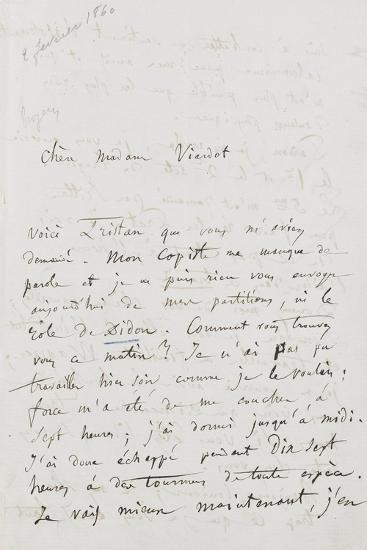 2 février 1860
Chère Madame Viardot
Voici Tristan que vous m'aviez
demandé. Mon Copiste me manque de
parole et je ne puis rien vous envoyer
aujourd'hui de mes partitions, ni le
rôle de Didon. Comment vous trouvez
vous ce matin? Je n'ai pas pu
travailler hier soir comme je le voulais;
force m'a été de me coucher à
sept heures; j'ai dormi jusqu'à midi.
J'ai donc échappé pendant Dix sept
heures à des tourmens de toute espèce.
Je vais mieux maintenant, j'en